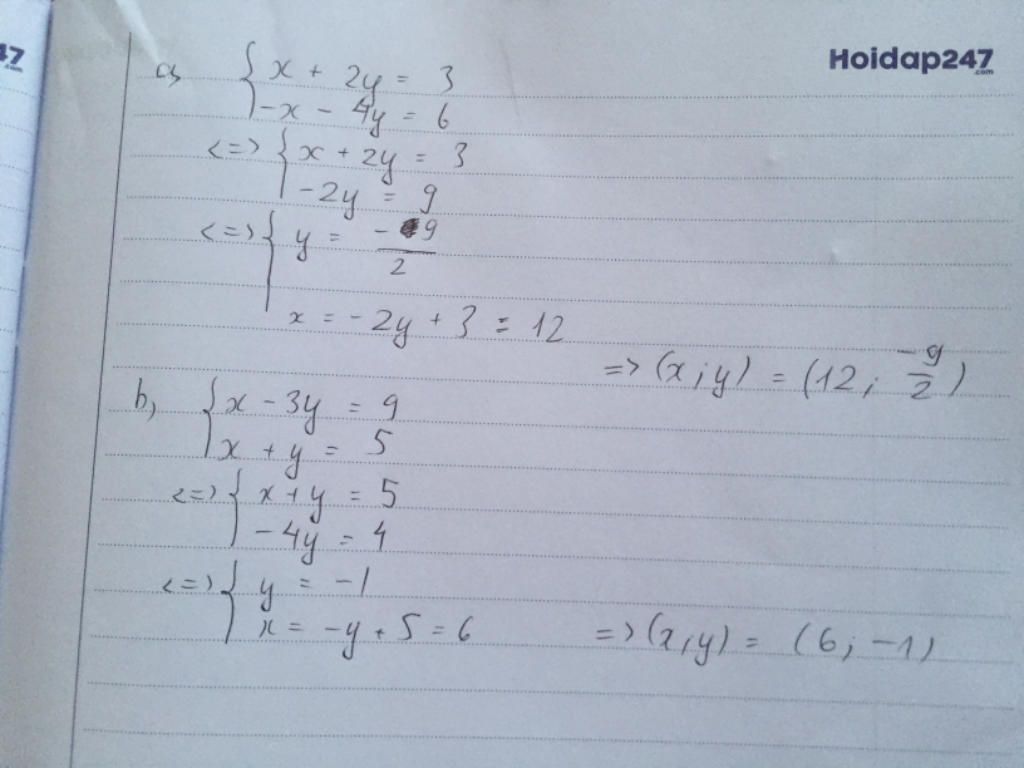 47
.com
Hoidap247
.com
a, { x + 2y = 3
-x - 4y = 6
<=> { x + 2y = 3
-2y = 9
<=> { y = -9/2
x = -2y + 3 = 12
=> (x; y) = (12; -9/2)
b, { x - 3y = 9
x + y = 5
<=> { x + y = 5
-4y = 4
<=> { y = -1
x = -y + 5 = 6 => (x, y) = (6; -1)